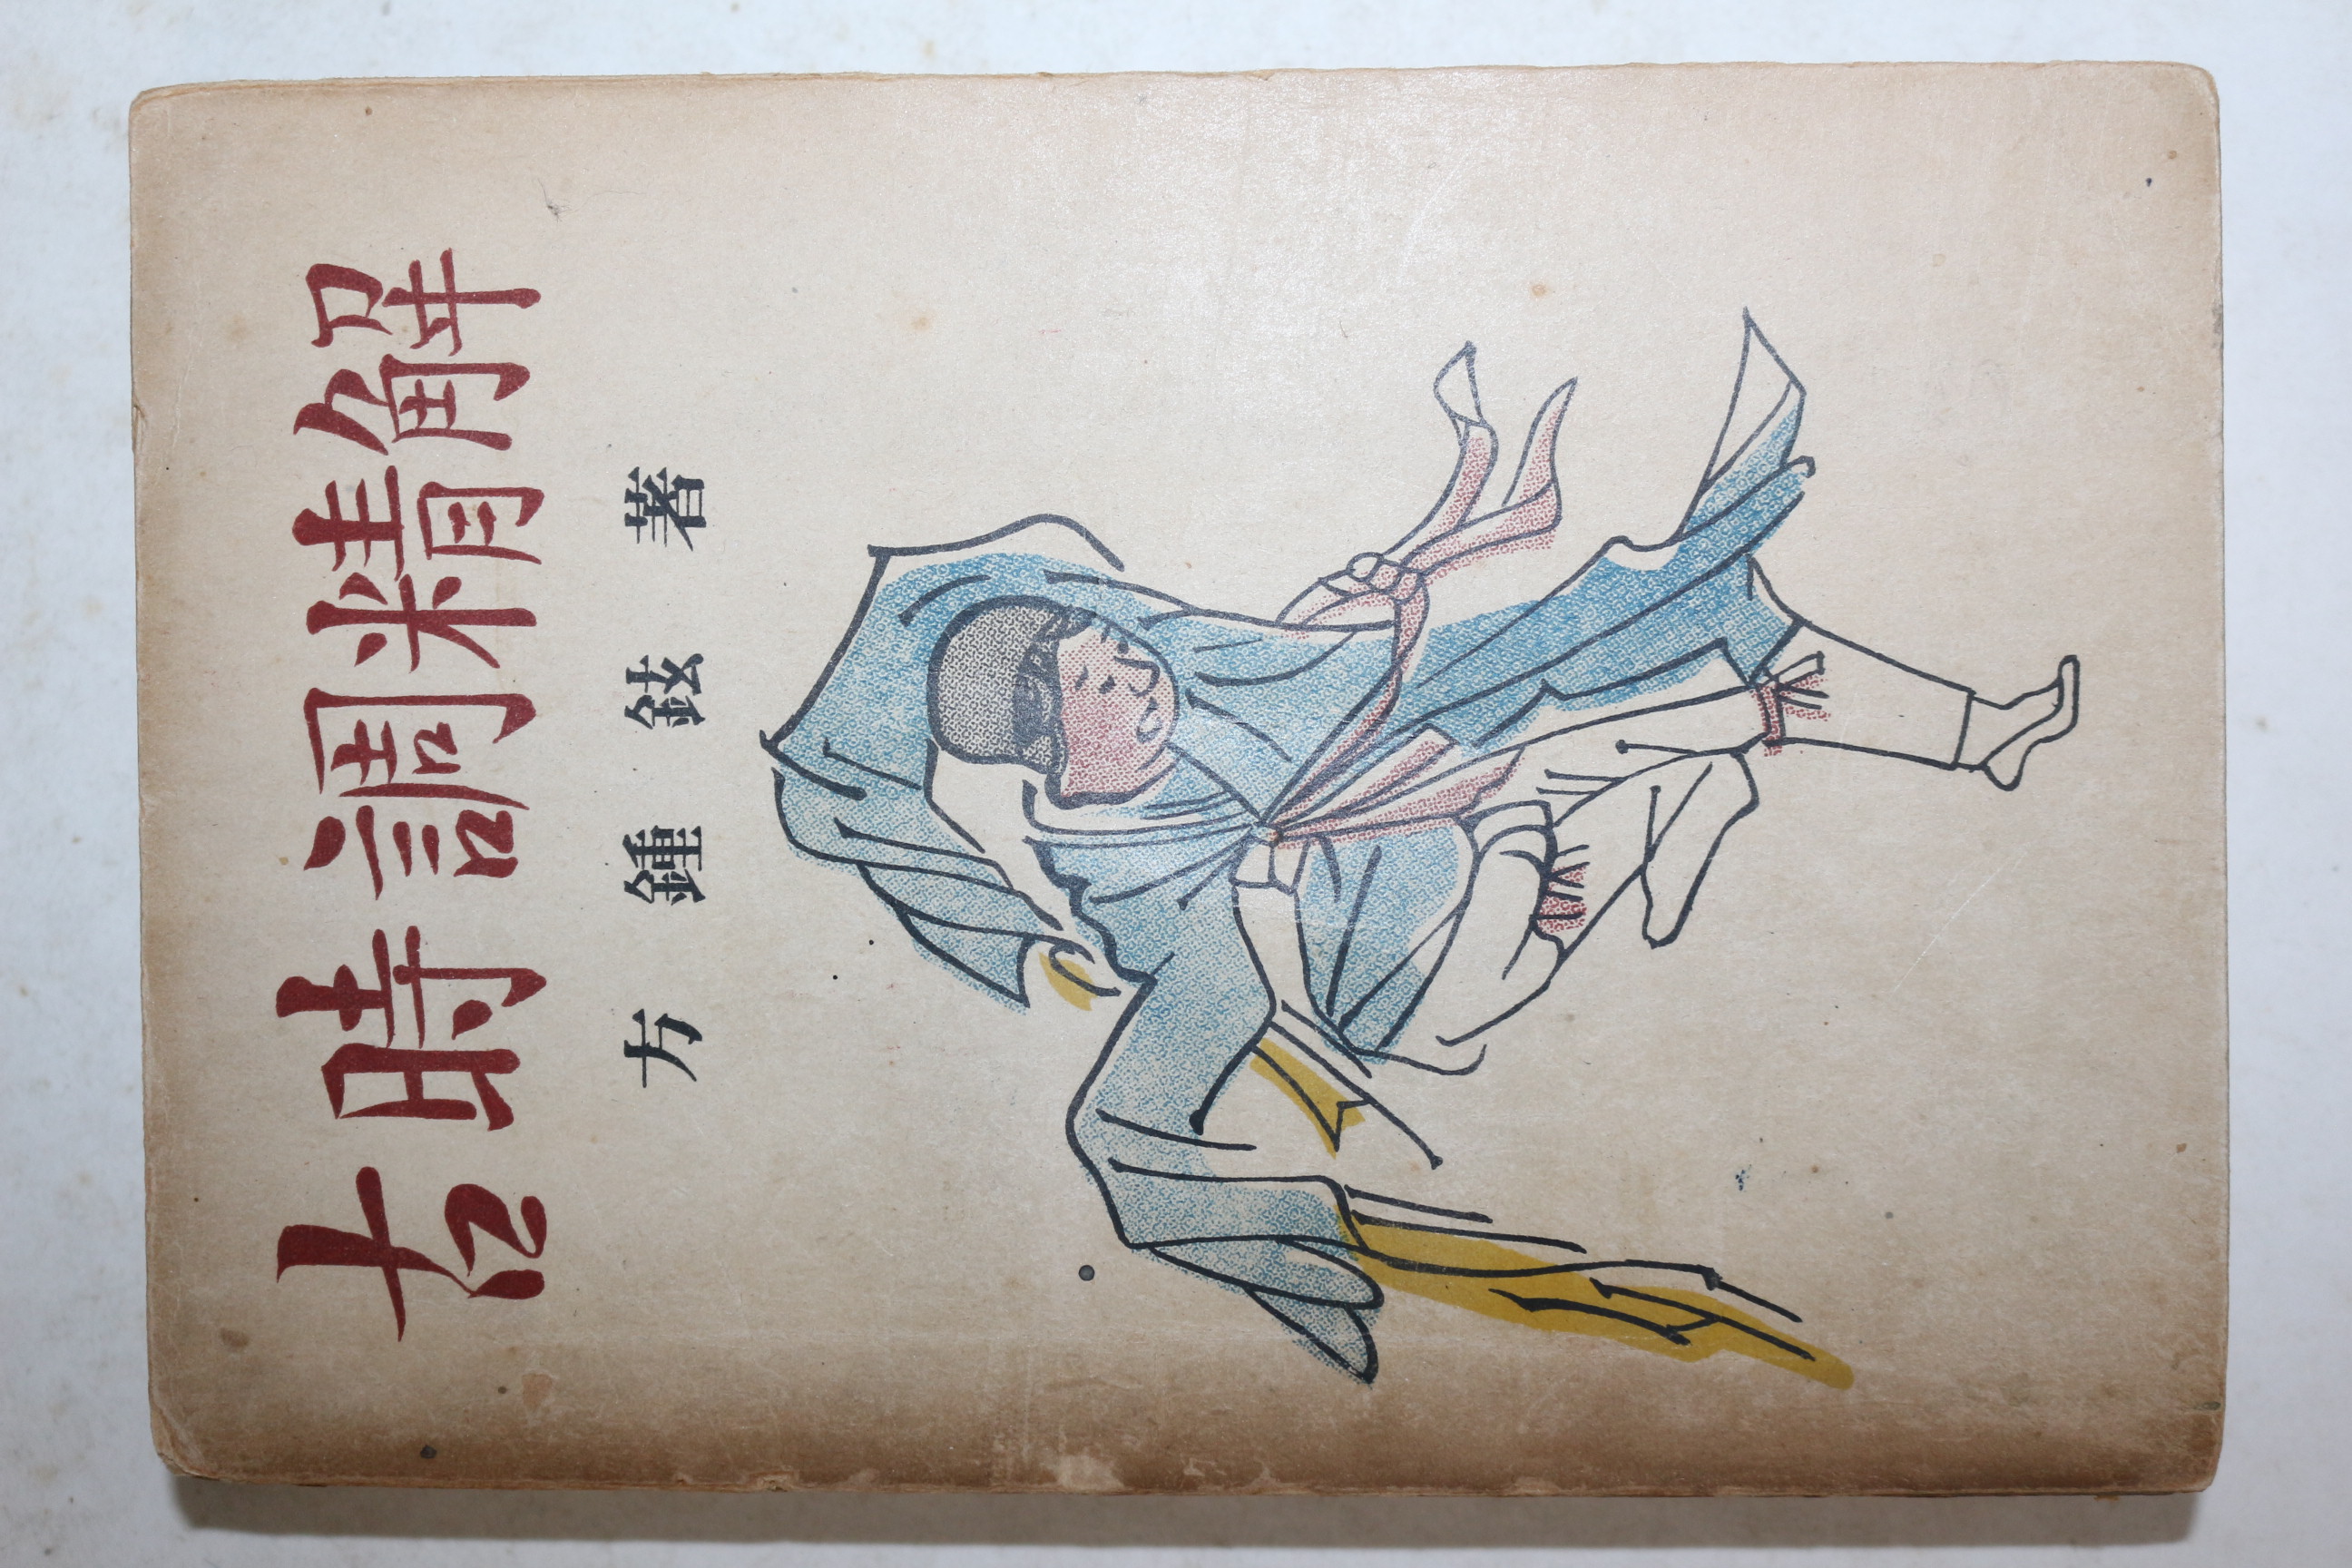 古時調精解
方鍾鉉著